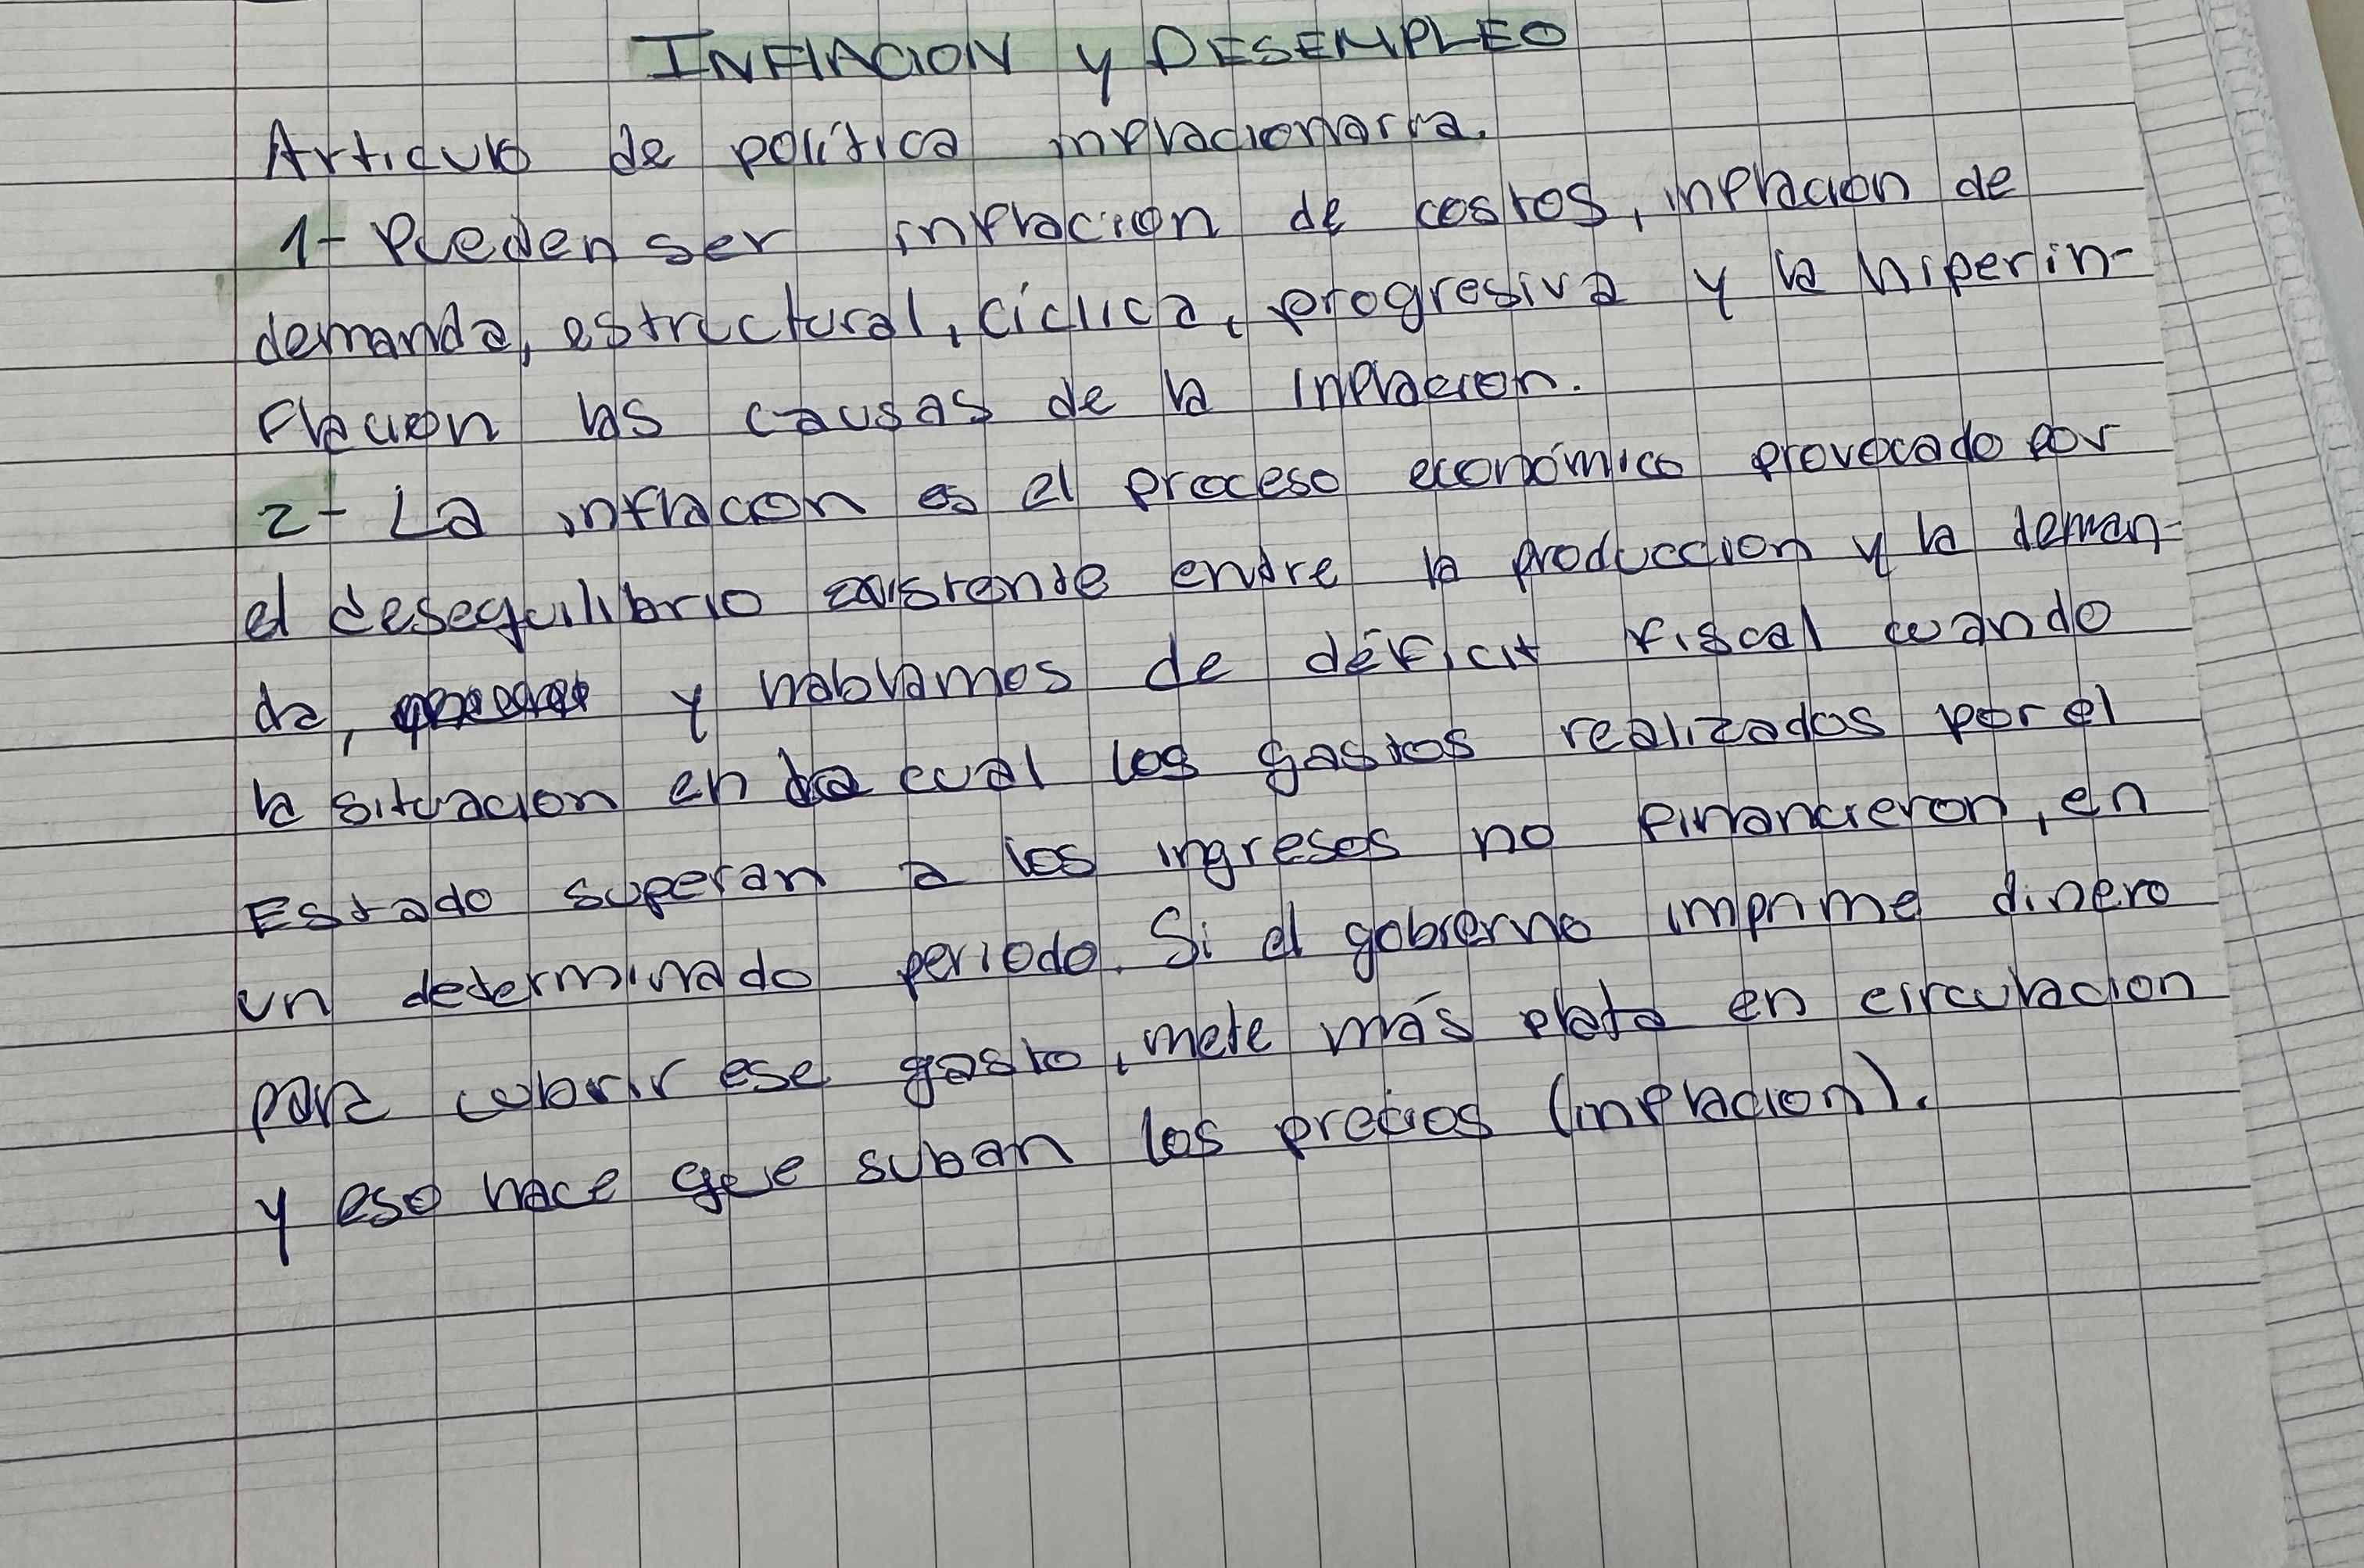 INFLACION y DESEMPLEO
Articulo de política inflacionaria.
1- Pueden ser inflacion de costos, inflacion de
demanda, estructural, cíclica, progresiva y la hiperin-
flacion las causas de la inflacion.
2- La inflacion es el proceso económico provocado por
el desequilibrio existente entre la produccion y la deman-
da, y hablamos de déficit fiscal cuando
la situacion en la cual los gastos realizados por el
Estado superan a los ingresos no financieron, en
un determinado periodo. Si el gobierno imprime dinero
para cubrir ese gasto, mete más plata en circulacion
y eso hace que suban los precios (inflacion).